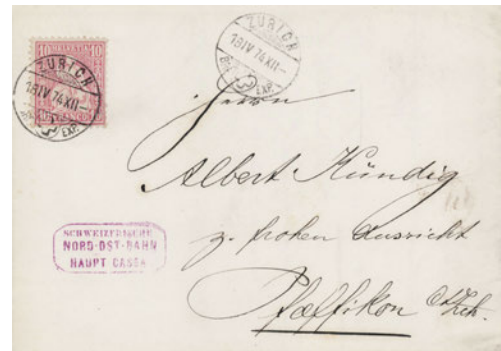 10 HELVETIA 10
FRANCO
ZÜRICH
18 IV 74 XII–
BRF. EXP.
ZÜRICH
18 IV 74 XII–
BRF. EXP.
Herrn
Albert Kündig
z. frohen Aussicht
Pfäffikon Ct. Zch.
SCHWEIZERISCHE
NORD-OST-BAHN
HAUPT CASSA